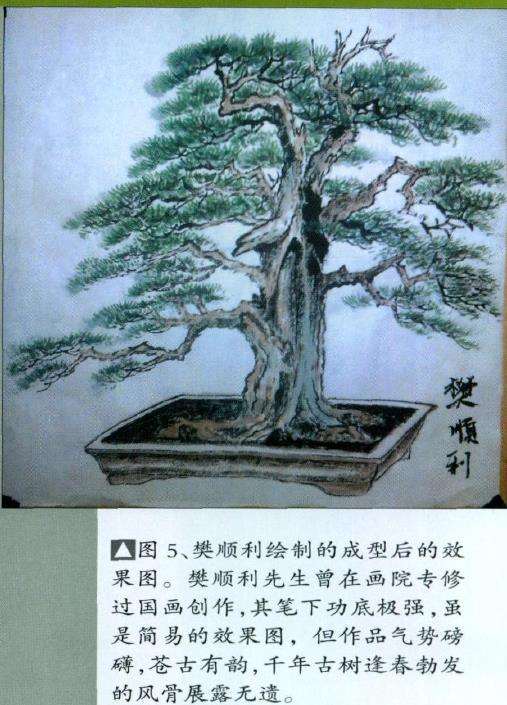 樊
顺
利
▲图 5、樊顺利绘制的成型后的效
果图。樊顺利先生曾在画院专修
过国画创作,其笔下功底极强,虽
是简易的效果图，但作品气势磅
礴,苍古有韵,千年古树逢春勃发
的风骨展露无遗。